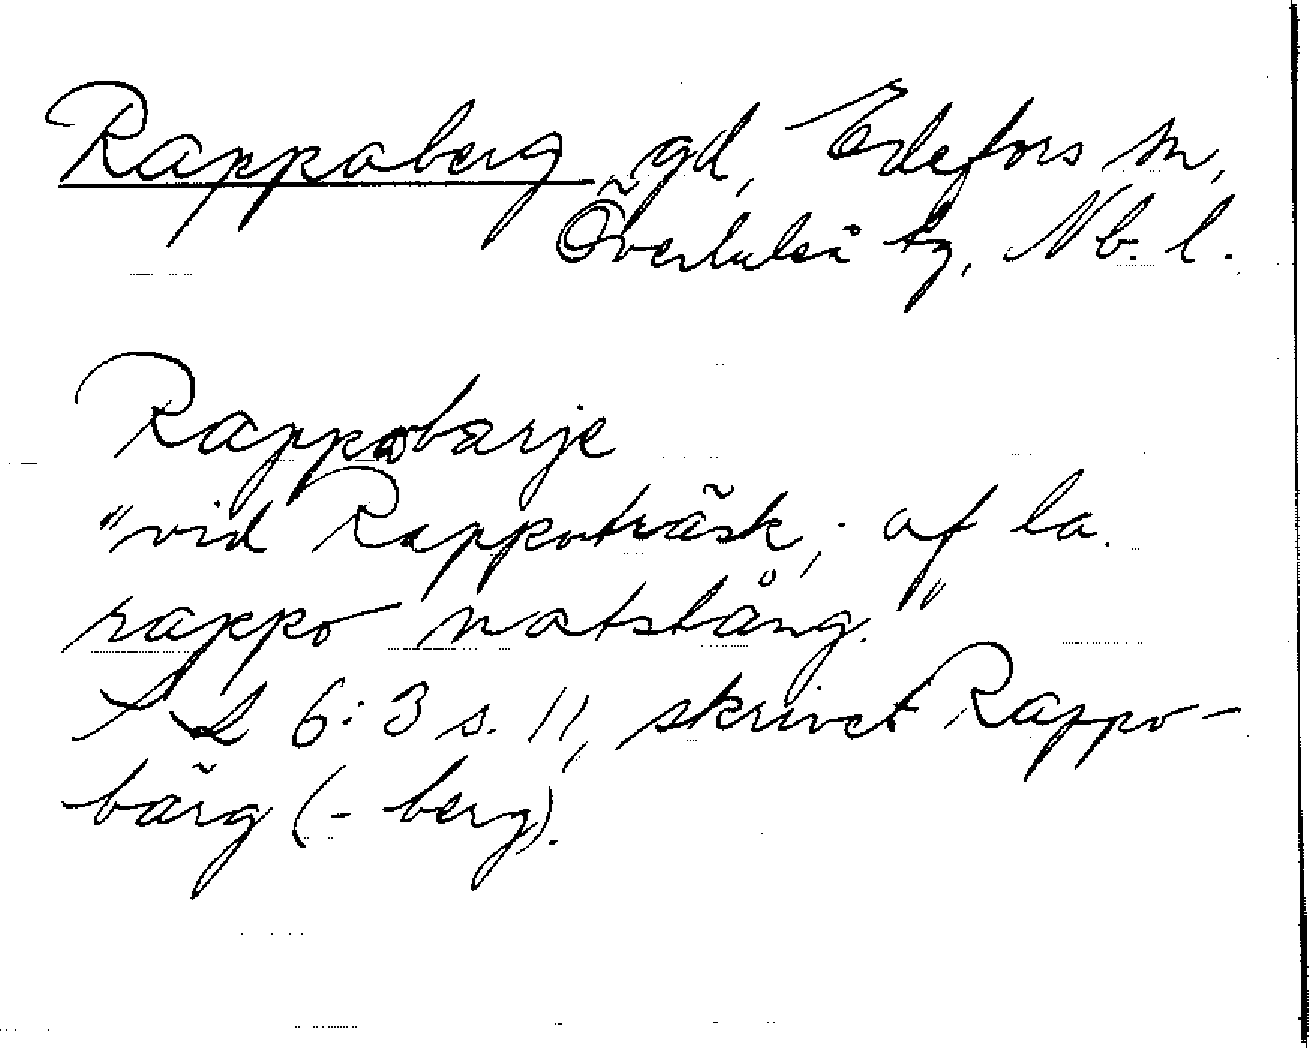 Rappaberg gd, Edefors sn,
Överluleå tg, Nb. l.
Rappobärje
"vid Rappoträsk; af la.
rappo notstång."
SL 6:3 s. 11, skrivet Rappo-
bärg (-berg).